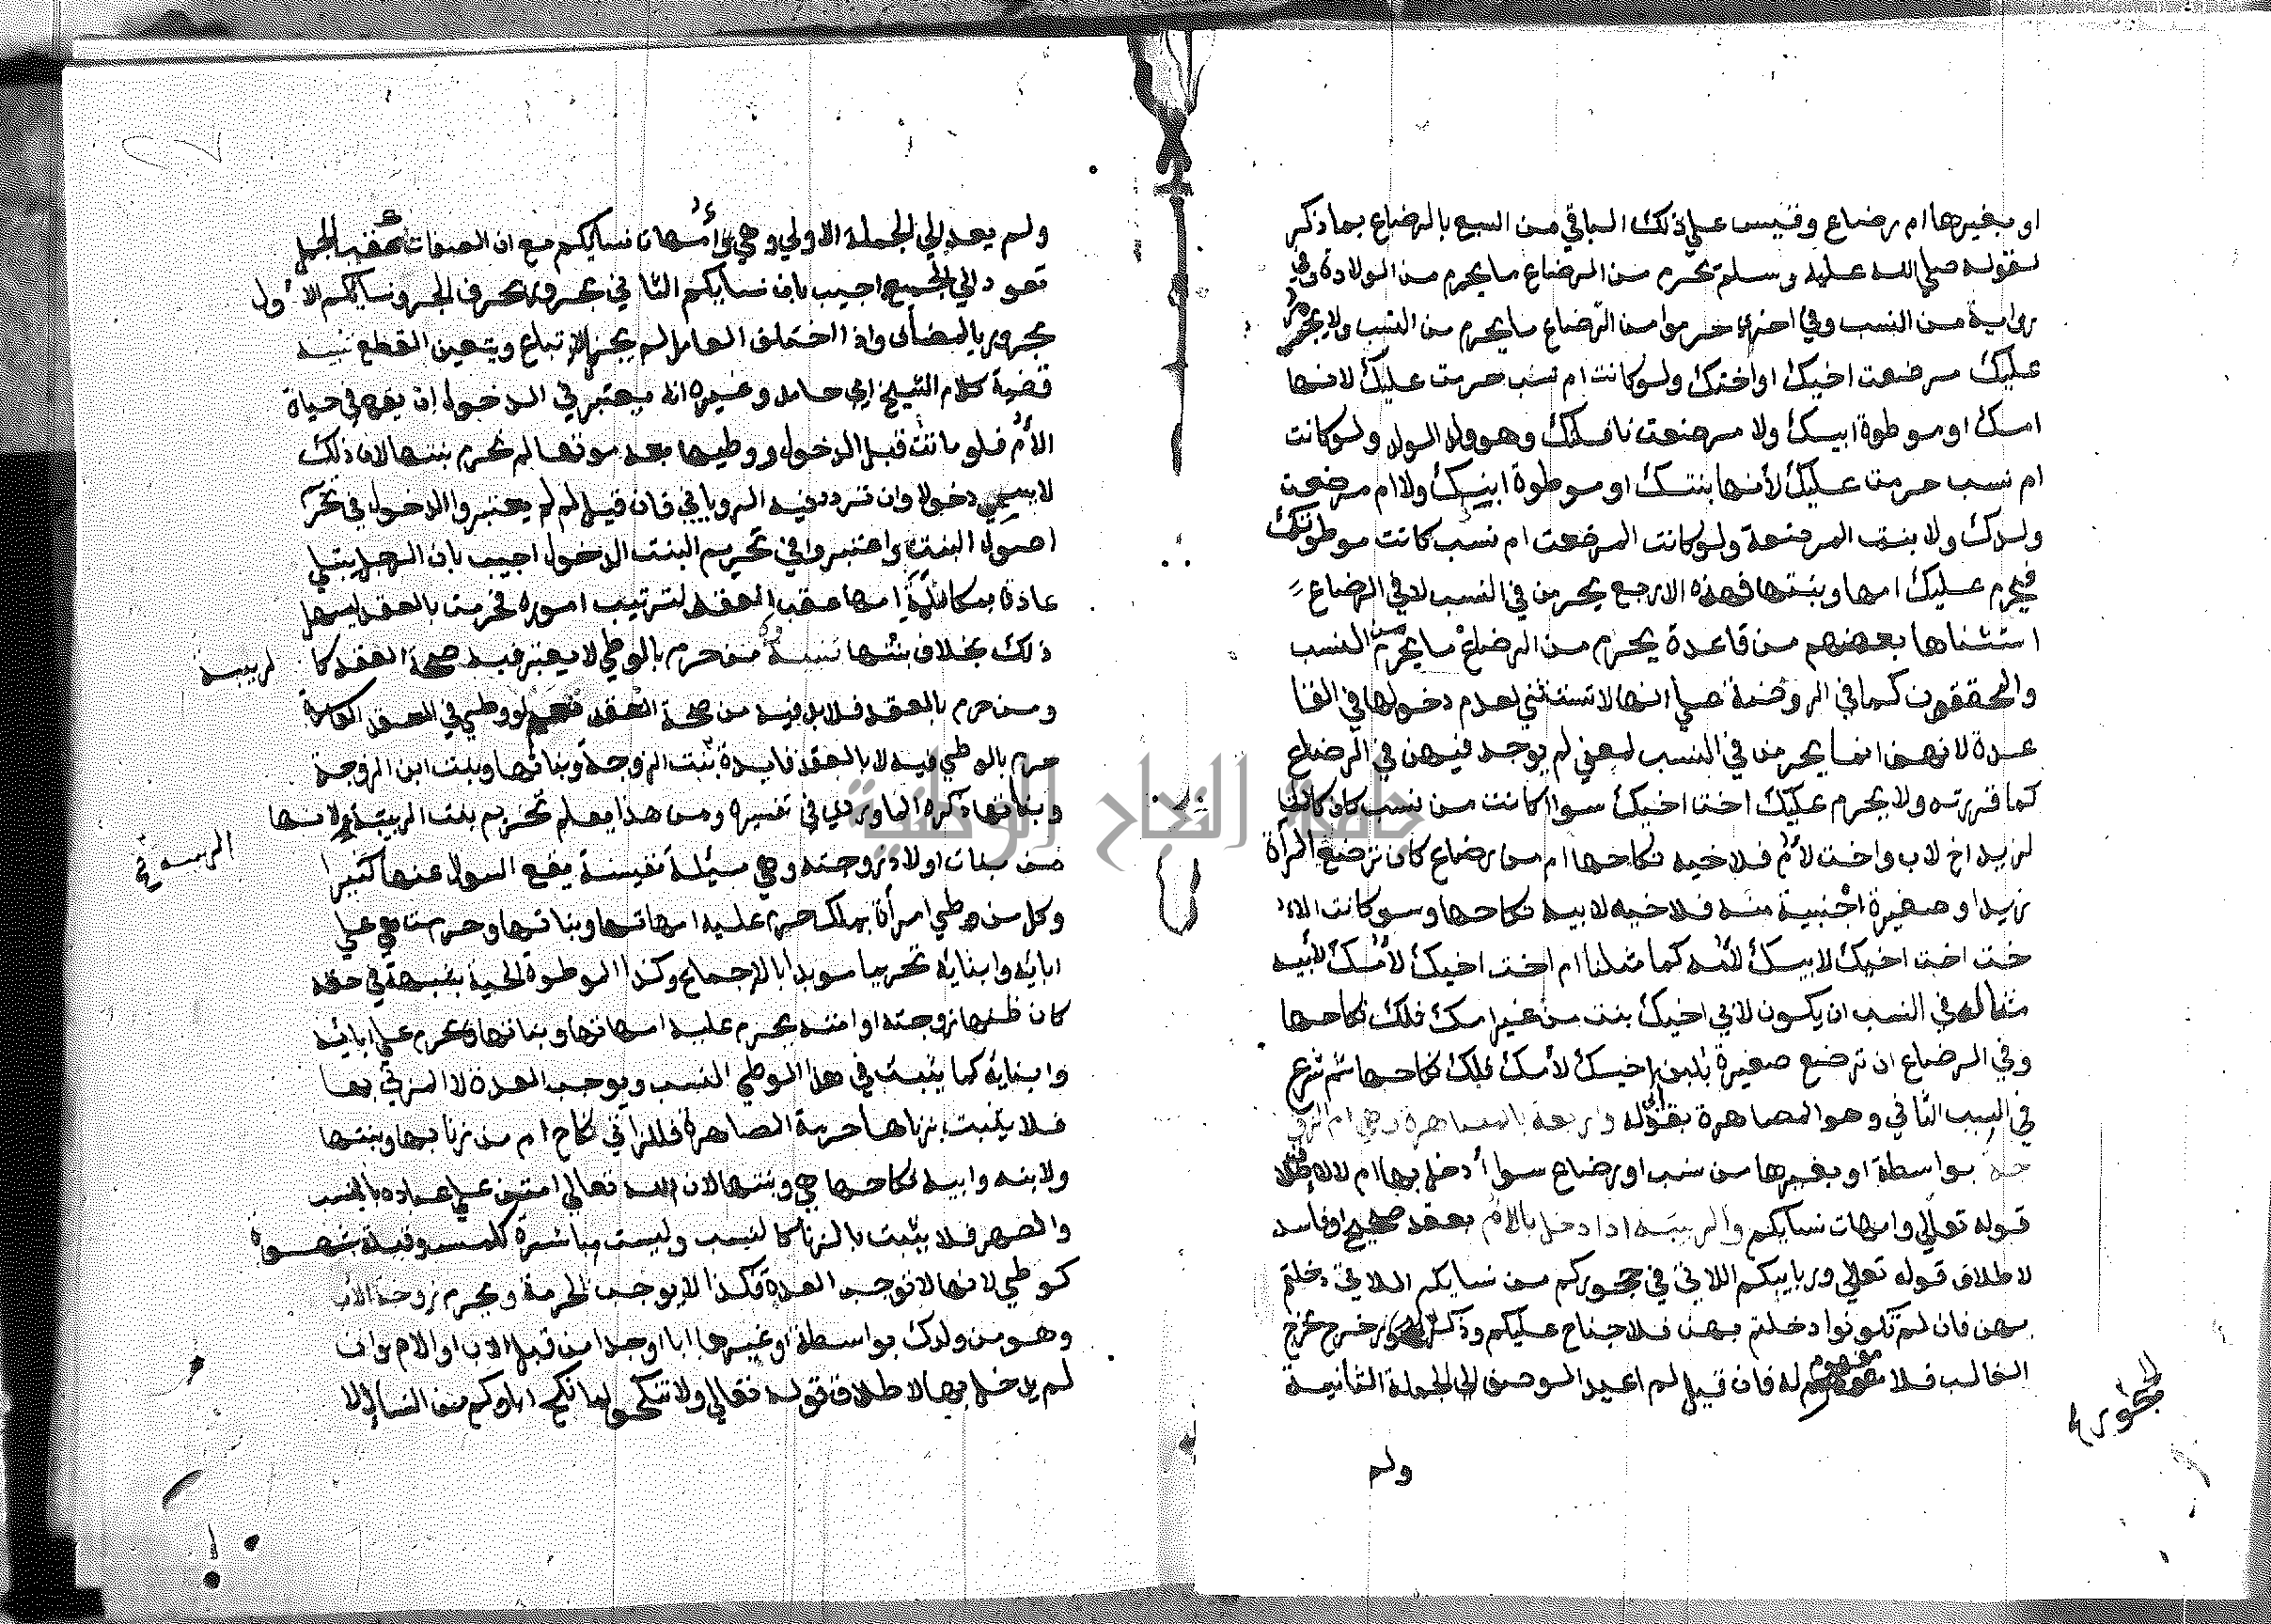 او بغيرها ام رضاع وقيس علي ذلك الباقي من السبع بالرضاع بما ذكر
لقوله صلي الله عليه وسلم يحرم من الرضاع ما يحرم من الولادة وفي
رواية من النسب وفي اخري حرموا من الرضاع ما يحرم من النسب ولا يحرم
عليك مرضعت اخيك او اختك ولو كانت ام نسب حرمت عليك لانها
امك او موطوة ابيك ولا مرضعت نافلتك وهو ولد الولد ولو كانت
ام نسب حرمت عليك لأنها بنتك او موطوة ابنك ولا ام مرضعت
ولدك ولا بنت المرضعة ولو كانت المرضعت ام نسب كانت موطوتك
فيحرم عليك امها وبنتها فهذه الاربع يحرمن في النسب لا في الرضاع
استثناها بعضهم من قاعدة يحرم من الرضاع ما يحرم من النسب
والمحققون كما في الروضة علي انها لا تستثني لعدم دخولها في القا
عدة لانهن انما يحرمن في النسب لمعني لم يوجد فيهن في الرضاع
كما قررته ولا يحرم عليك اخت اخيك سوا اكانت من نسب كان كان
لزيد اخ لاب واخت لأم فلاخيه نكاحها ام من رضاع كان ترضع امرأة
زيدا وصغيرة اجنبية منه فلاخيه لابيه نكاحها وسو كانت الا
خت اخت اخيك لابيك لأمه كما مثلنا ام اخت اخيك لأمك لأبيه
مثاله في النسب ان يكون لابي اخيك بنت من غير امك فلك نكاحها
وفي الرضاع ان ترضع صغيرة بلبن ابي اخيك لأمك فلك نكاحها ثم شرع
في السبب الثاني وهو المصاهرة بقوله واربعة بالمصاهرة وهي ام الزو
جة بواسطة او بغيرها من نسب او رضاع سوا أدخل بها ام لا لاطلا
قوله تعالي وامهات نسايكم والربيبة اذا دخل بالام بعقد صحيح او فاسد
لاطلاق قوله تعالي وربايبكم اللاتي في حجوركم من نسايكم اللاتي دخلتم
بهن فان لم تكونوا دخلتم بهن فلا جناح عليكم وذكر الحجور خرج مخرج
الغالب فلا مفهوم له فان قيل لم اعيد الوصف الي الجملة الثانية
الحجور
ولم
ولم يعد الي الجملة الاولي وهي وأمهات نسايكم مع ان الصفات عقب الجمل
تعود الي الجميع اجيب بان نسايكم الثاني مجرور بحرف الجر ونسايكم الأول
مجرور بالمضاف واذا اختلف العامل لم يجز الاتباع ويتعين القطع تنبيه
قضية كلام الشيخ ابي حامد وغيره انه يعتبر في الدخول ان يقع في حياة
الأم فلو ماتت قبل الدخول ووطيها بعد موتها لم تحرم بنتها لان ذلك
لا يسمي دخولا وان تردد فيه الروياني فان قيل لم لم يعتبروا الدخول في تحريم
اصول البنت واعتبروا في تحريم البنت الدخول اجيب بان الرجل يبتلي
عادة بمكالمة امها عقب العقد لترتيب اموره فحرمت بالعقد ليسهل
ذلك بخلاف بنتها تنبيه من حرم بالوطي لا يعتبر فيه صحة العقد كا
لربيبة
ومن حرم بالعقد فلا بد فيه من صحة العقد نعم لو وطي في العقد الفاسد
حرم بالوطي فيه لا بالعقد فايدة بنت الزوجة وبناتها وبنت ابن الزوجة
وبناتها ذكره الماوردي في تفسيره ومن هذا يعلم تحريم بنت الربيبة لانها
من بنات اولاد زوجته وهي مسئلة نفيسة يقع السوال عنها كثيرا
وكل من وطي امرأة بملك حرم عليه امهاتها وبناتها وحرمت هي علي
ابايه وابنايه تحريما موبدا بالاجماع وكذا الموطوة الحية بشبهة في حقه
كان ظنها زوجته او امته يحرم عليه امهاتها وبناتها وتحرم علي ابايه
وابنايه كما يثبت في هذا الوطي النسب ويوجب العدة لا المزني بها
فلا يثبت بزناها حرمة المصاهرة فللزاني نكاح ام من زنا بها وبنتها
ولابنه وابيه نكاحها هي وبنتها لان الله تعالي امتن علي عباده بالنسب
والصهر فلا يثبت بالزنا كالنسب وليست مباشرة كلمس وقبلة بشهوة
كوطي لانها لا توجب العدة فكذا لا يوجب الحرمة ويحرم زوجة الأب
وهو من ولدك بواسطة او غيرها ابا او جدا من قبل الاب او الام وان
لم يدخل بها لاطلاق قوله تعالي ولا تنكحوا ما نكح اباوكم من النسا الا
جامعة النجاح الوطنية